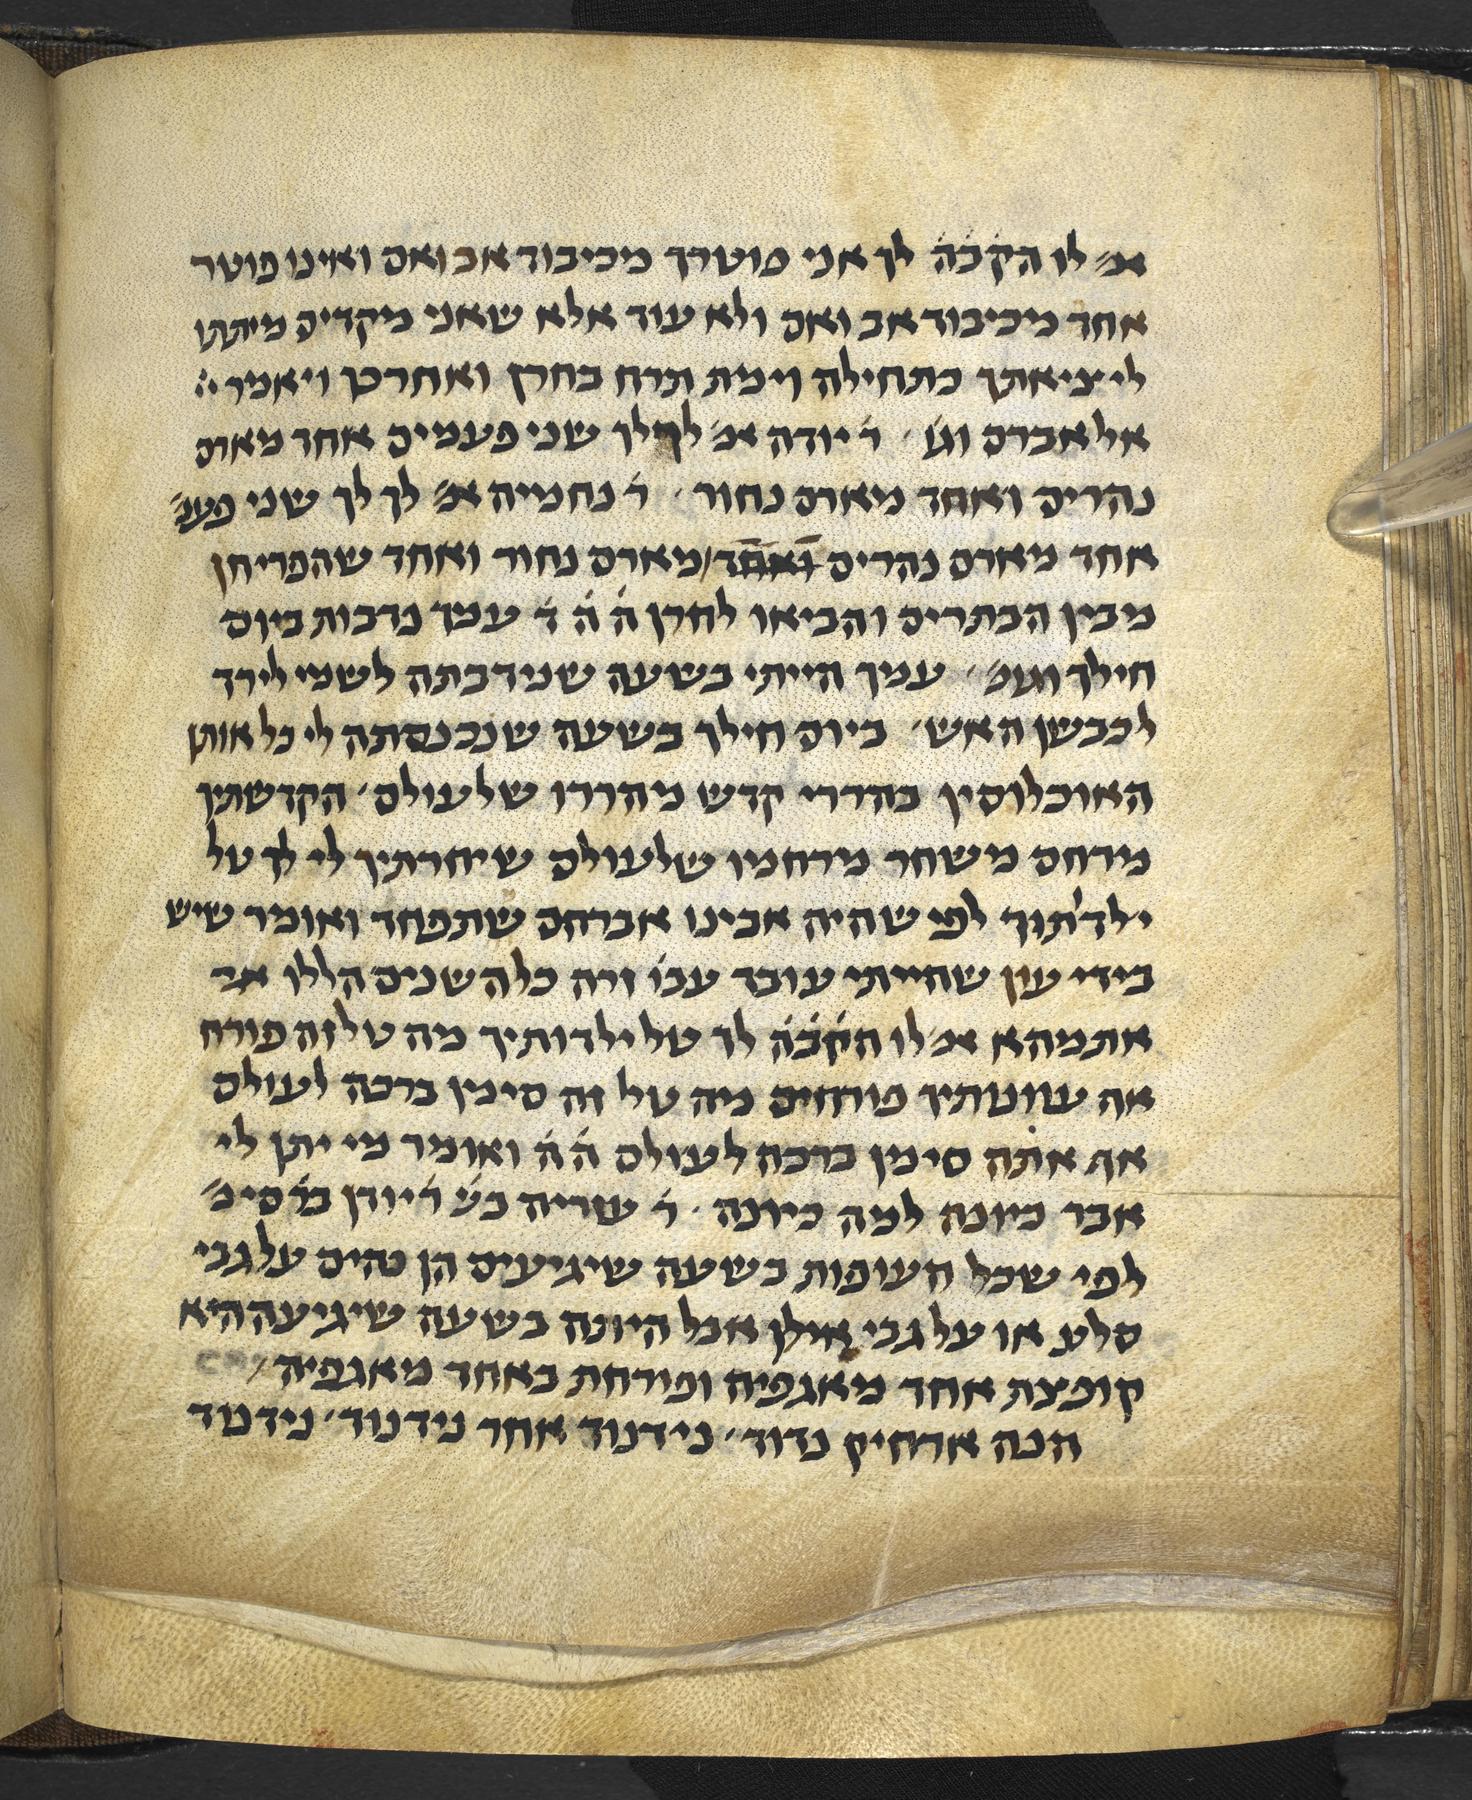 אמ׳ לו הק̇ב̇ה̇ לך אני פוטרך מכיבוד אב ואם ואינו פוטר
אחד מכיבוד אב ואם ולא עוד אלא שאני מקדים מיתתו
ליציאתך כתחילה וימת תרח בחרן ואחר כך ויאמר יי׳
אל אברם וג׳ ׳ ר׳ יודה אמ׳ לך לך שני פעמים אחד מארם
נהרים ואחד מארם נחור ׳ ר׳ נחמיה אמ׳ לך לך שני פעמ׳
אחד מארם נהרים ואחד מארם נחור ואחד שהפריחן
מבין הבתרים והביאו לחרן ה̇ ה̇ ד̇ עמך נדבות ביום
חילך וגומ׳ ׳ עמך הייתי בשעה שנידבתה לשמי לירד
לכבשן האש ׳ ביום חילך בשעה שנכנסתה לי כל אותן
האוכלוסין בהדרי קדש מהררו שלעולם ׳ הקדשתיך
מרחם משחר מרחמו שלעולם שיחרתיך לי לך טל
ילדתוך לפי שהיה אבינו אברהם שתפחד ואומר שיש
בידי עון שהייתי עובד עבו׳ זרה כל השנים הללו אמ׳
אתמהא אמ׳ לו הק̇ב̇ה̇ לך טל ילדותיך מה טל זה פורח
אף עוונותיך פורחים מה טל זה סימן ברכה לעולם
אף אתה סימן ברכה לעולם ה̇ ה̇ ואומר מי יתן לי
אבר כיונה למה כיונה ׳ ר׳ עזריה בש׳ ר׳ יודן בר סימ׳
לפי שכל העופות בשעה שיגיעים הן נחים על גבי
סלע או על גבי אילן אבל היונה בשעה שיגיעה היא
קופצת אחד מאגפיה ופורחת באחד מאגפיה ׳
הנה ארחיק נדוד ׳ נידנוד אחר נידנוד ׳ נידנוד